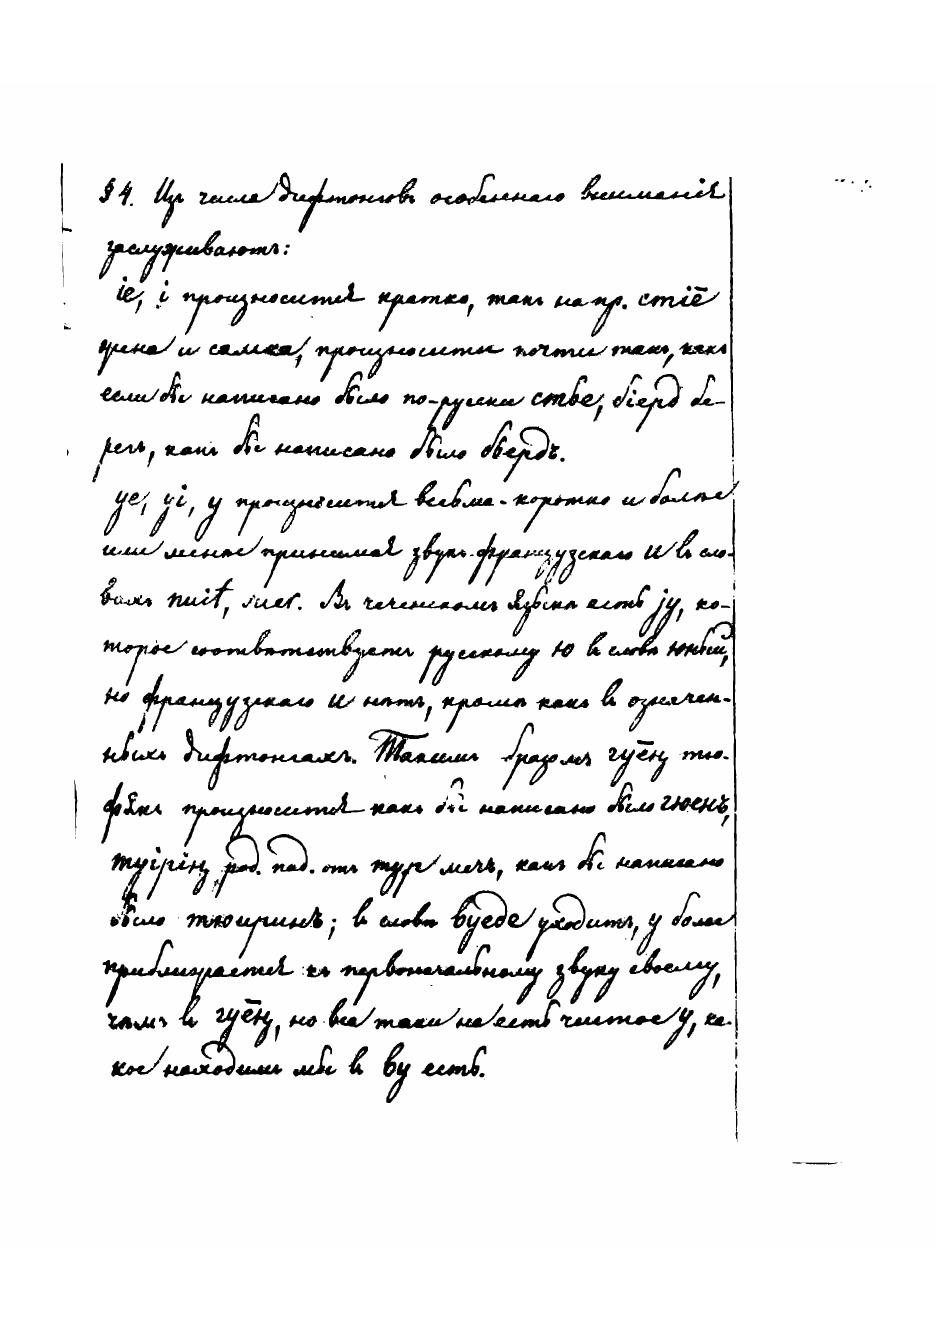 § 4. Изъ числа дифтонговъ особеннаго вниманія
заслуживаютъ:
іе, і произносится кратко, такъ напр. стіē
жена и самка, произносити почти такъ, какъ
если бы написано было по-русски стье, біерд бе-
регъ, какъ бы написано было бьердъ.
уе, уі, у произносится весьма коротко и болѣе
или менѣе принимая звукъ французскаго u въ сло-
вахъ nuit, suer. Въ чеченскомъ языкѣ есть jу, ко-
торое соотвѣтствуетъ русскому ю въ словѣ юный,
но французскаго u нѣтъ, кромѣ какъ въ означен-
ныхъ дифтонгахъ. Такимъ образомъ гуēнц тю-
фякъ произносится какъ бы написано было гюенъ,
туірің род. пад. отъ тур мечъ, какъ бы написано
было тюиринъ; въ словѣ вуеде уходитъ, у болѣе
приближается къ первоначальному звуку своему,
чѣмъ въ гуēң, но все таки не есть чистое у, ка-
кое находимъ мы въ ву есть.